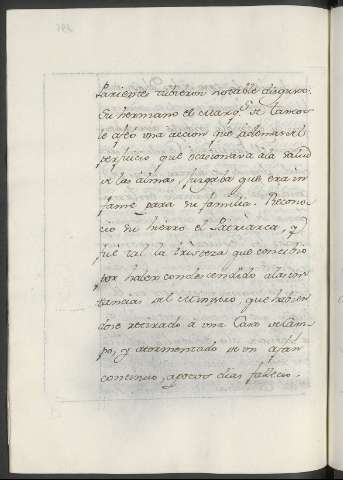 Parientes tubieron notable disgusto.
Su hermano el Marqs. de
le afeó una accion que ademas del
perjuicio que ocacionava ala salud
de las almas, jusgaba que era in
fame para su familia. Recono
cio su hierro el Patriarca, y
fué tal la tristeza que concibio
por haber condescendido alas ins
tancias del Ministro que habien
dose retirado à una Casa de Cam
po, y atormentado de un afan
continuo, apocos dias fallecio.